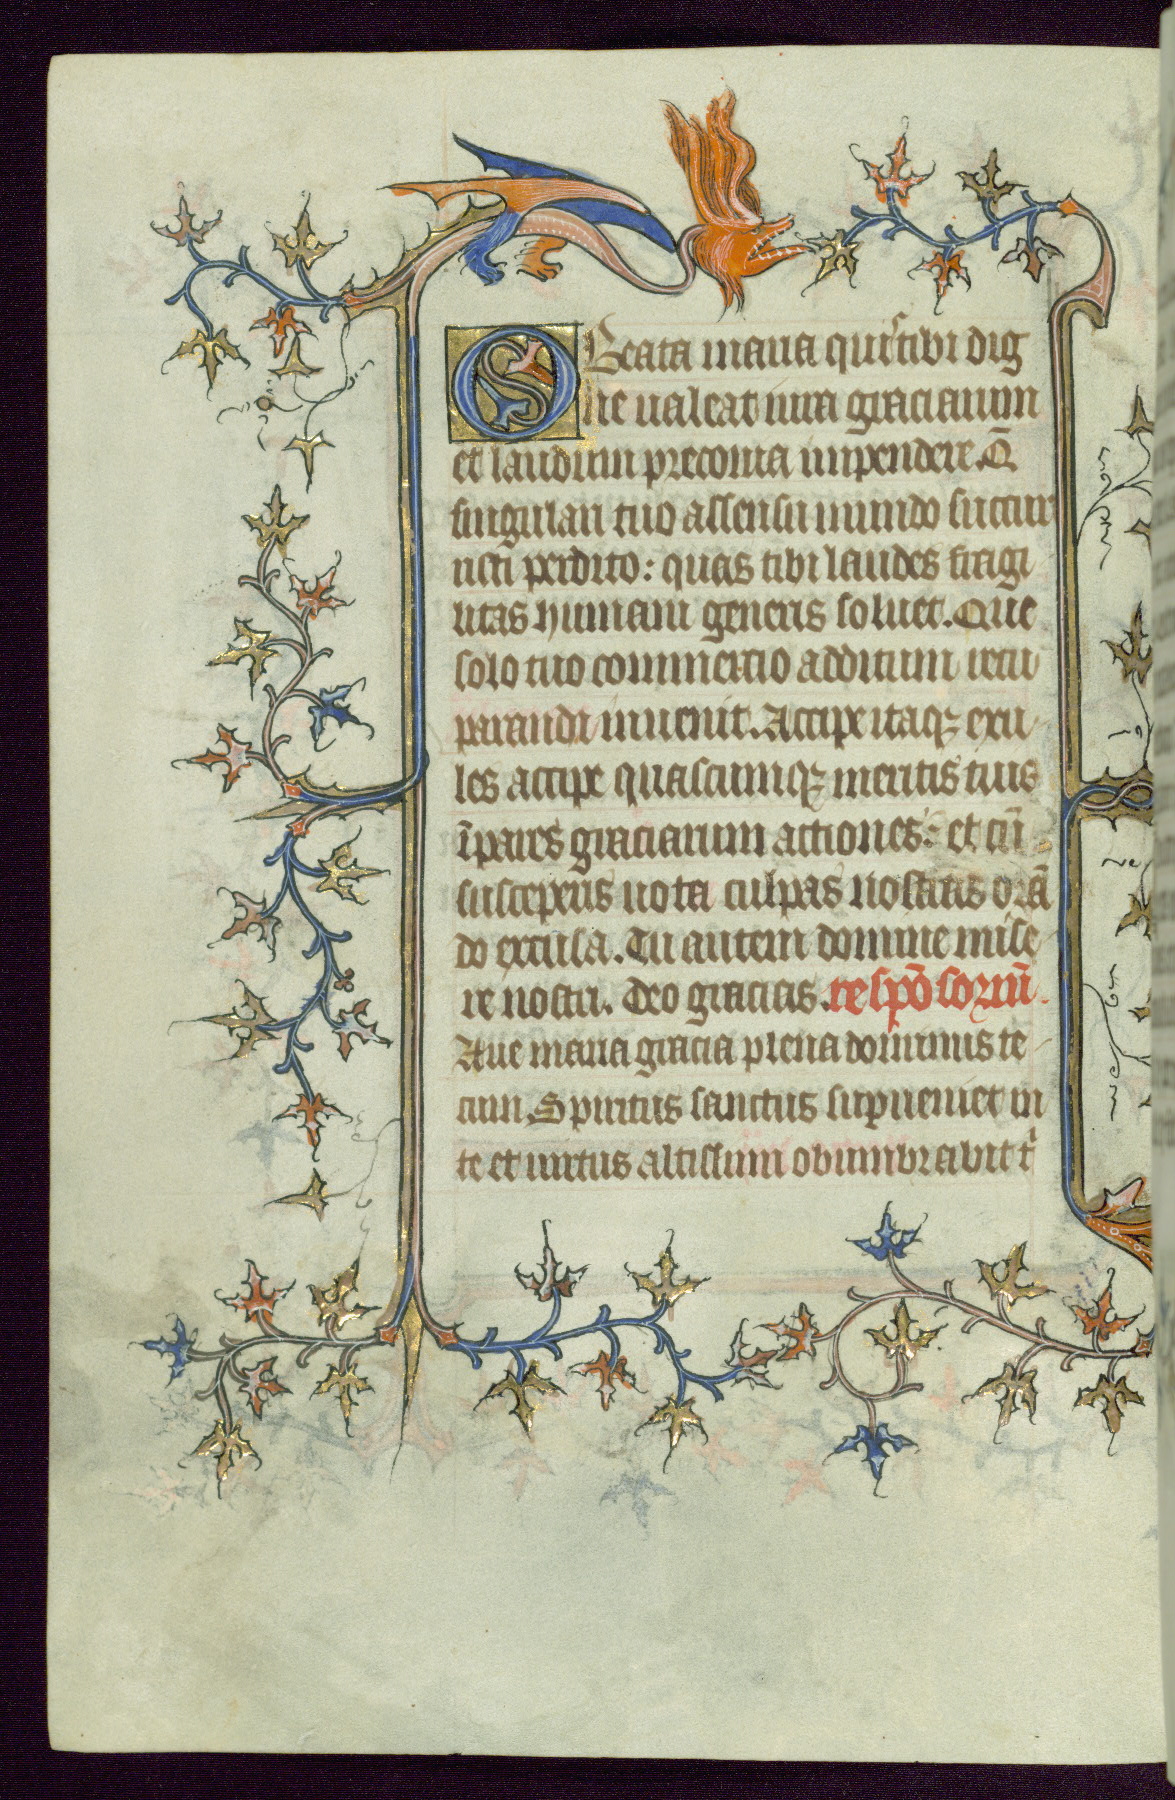 O Beata maria quis tibi dig
ne ualeat iura graciarum
et laudum preconia impendere. Q̄
singulari tuo assensu mundo succur
risti perdito: quas tibi laudes fragi
litas humani generis soluet. Que
solo tuo commercio additum recu
parandi inuenit. Accipe itaqꝫ exi
les accipe quascumqꝫ meritis tuis
īpares graciarum actiones: et cū
susceperis uota culpas nostras orā
do excusa. Tu autem domine mise
re nostri. Deo gracias. respōsoriū.
Aue maria gracia plena dominus te
cum Spiritus sanctus supueniet in
te et uirtus altissimi obumbrabit tͥ